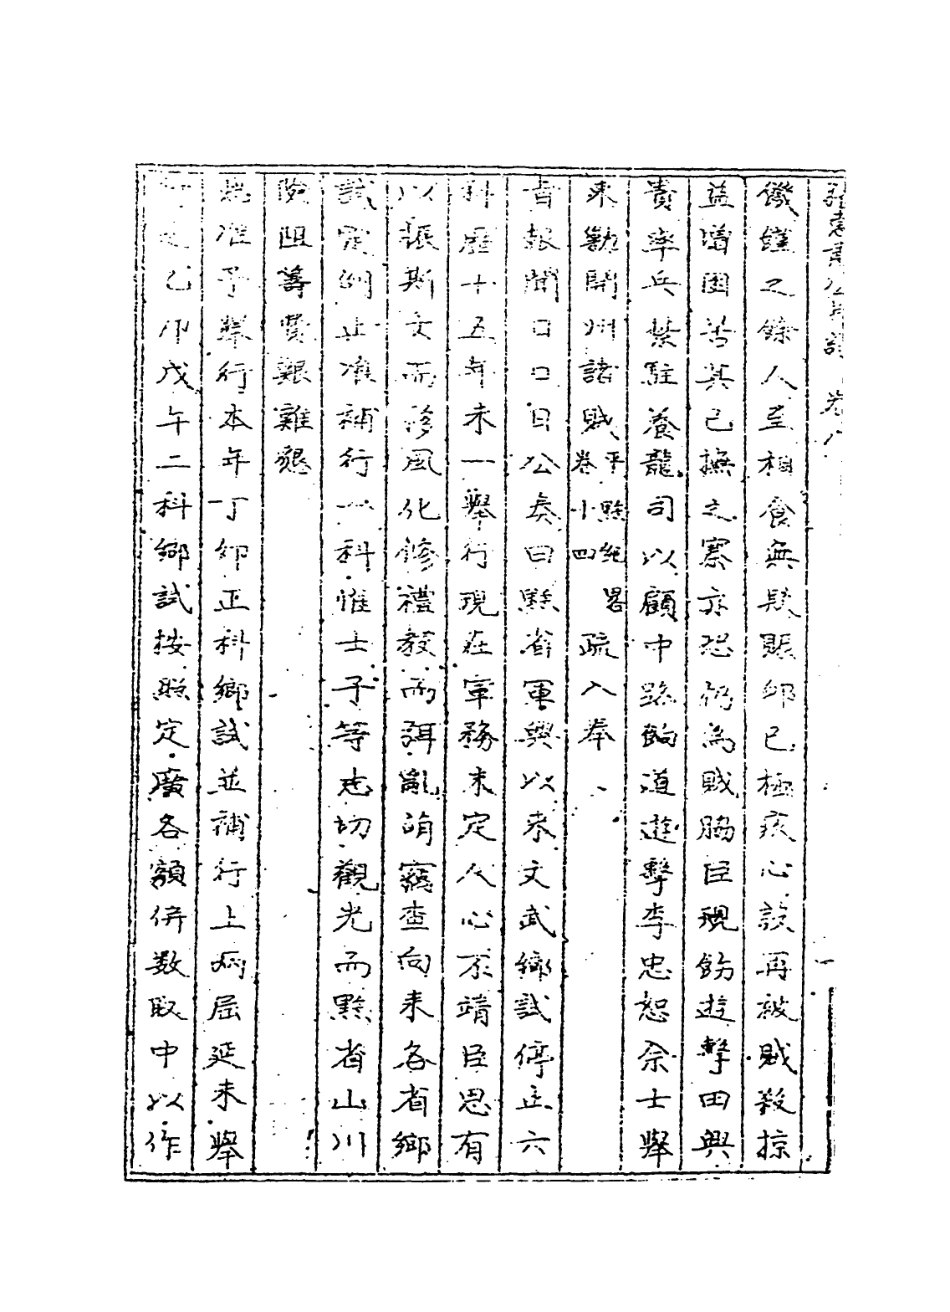 公年譜 卷八
饑饉之餘人至相食無賑卹已極疾心設再被賊殺掠
益增困苦其已撫之寨亦恐仍為賊脇臣現飭遊擊田興
貴率兵禁駐養龍司以顧中路餉道遊擊李忠恕佘士舉
來勦開州諸賊平黔紀畧卷十四疏入奉
旨報聞口口日公奏曰黔省軍興以來文武鄉試停止六
科歷十五年未一舉行現在軍務未定人心不靖臣思有
以振斯文而移風化修禮教而弭亂萌竊查向來各省鄉
試定例止准補行一科惟士子等志切觀光而黔省山川
險阻籌費艱難懇
恩准予舉行本年丁卯正科鄉試並補行上兩屆延未舉
行之乙卯戊午二科鄉試按照定廣各額併數取中以作